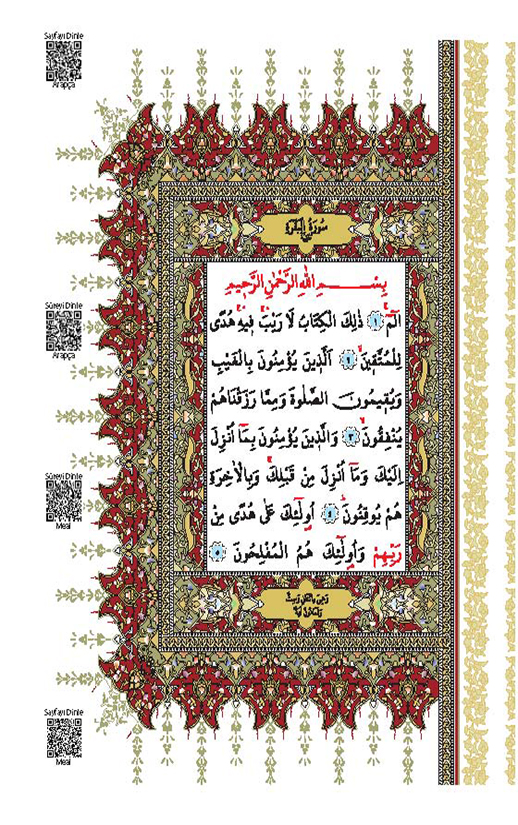 Sayfayı Dinle
Arapça
سُورَةُ الْبَقَرَةِ
بِسْمِ اللّٰهِ الرَّحْمٰنِ الرَّحٖيمِ
الٓمٓ ۚ ﴿١﴾ ذٰلِكَ الْكِتَابُ لَا رَيْبَ ۚۛ فٖيهِ ۚۛ هُدًى
لِلْمُتَّقٖينَ ۙ ﴿٢﴾ اَلَّذٖينَ يُؤْمِنُونَ بِالْغَيْبِ
وَيُقٖيمُونَ الصَّلٰوةَ وَمِمَّا رَزَقْنَاهُمْ
يُنْفِقُونَ ۙ ﴿٣﴾ وَالَّذٖينَ يُؤْمِنُونَ بِمَٓا اُنْزِلَ
اِلَيْكَ وَمَٓا اُنْزِلَ مِنْ قَبْلِكَ ۚ وَبِالْاٰخِرَةِ
هُمْ يُوقِنُونَ ۜ ﴿٤﴾ اُولٰٓئِكَ عَلٰى هُدًى مِنْ
رَبِّهِمْ وَاُولٰٓئِكَ هُمُ الْمُفْلِحُونَ ﴿٥﴾
Sûreyi Dinle
Arapça
Sûreyi Dinle
Meal
Sayfayı Dinle
Meal